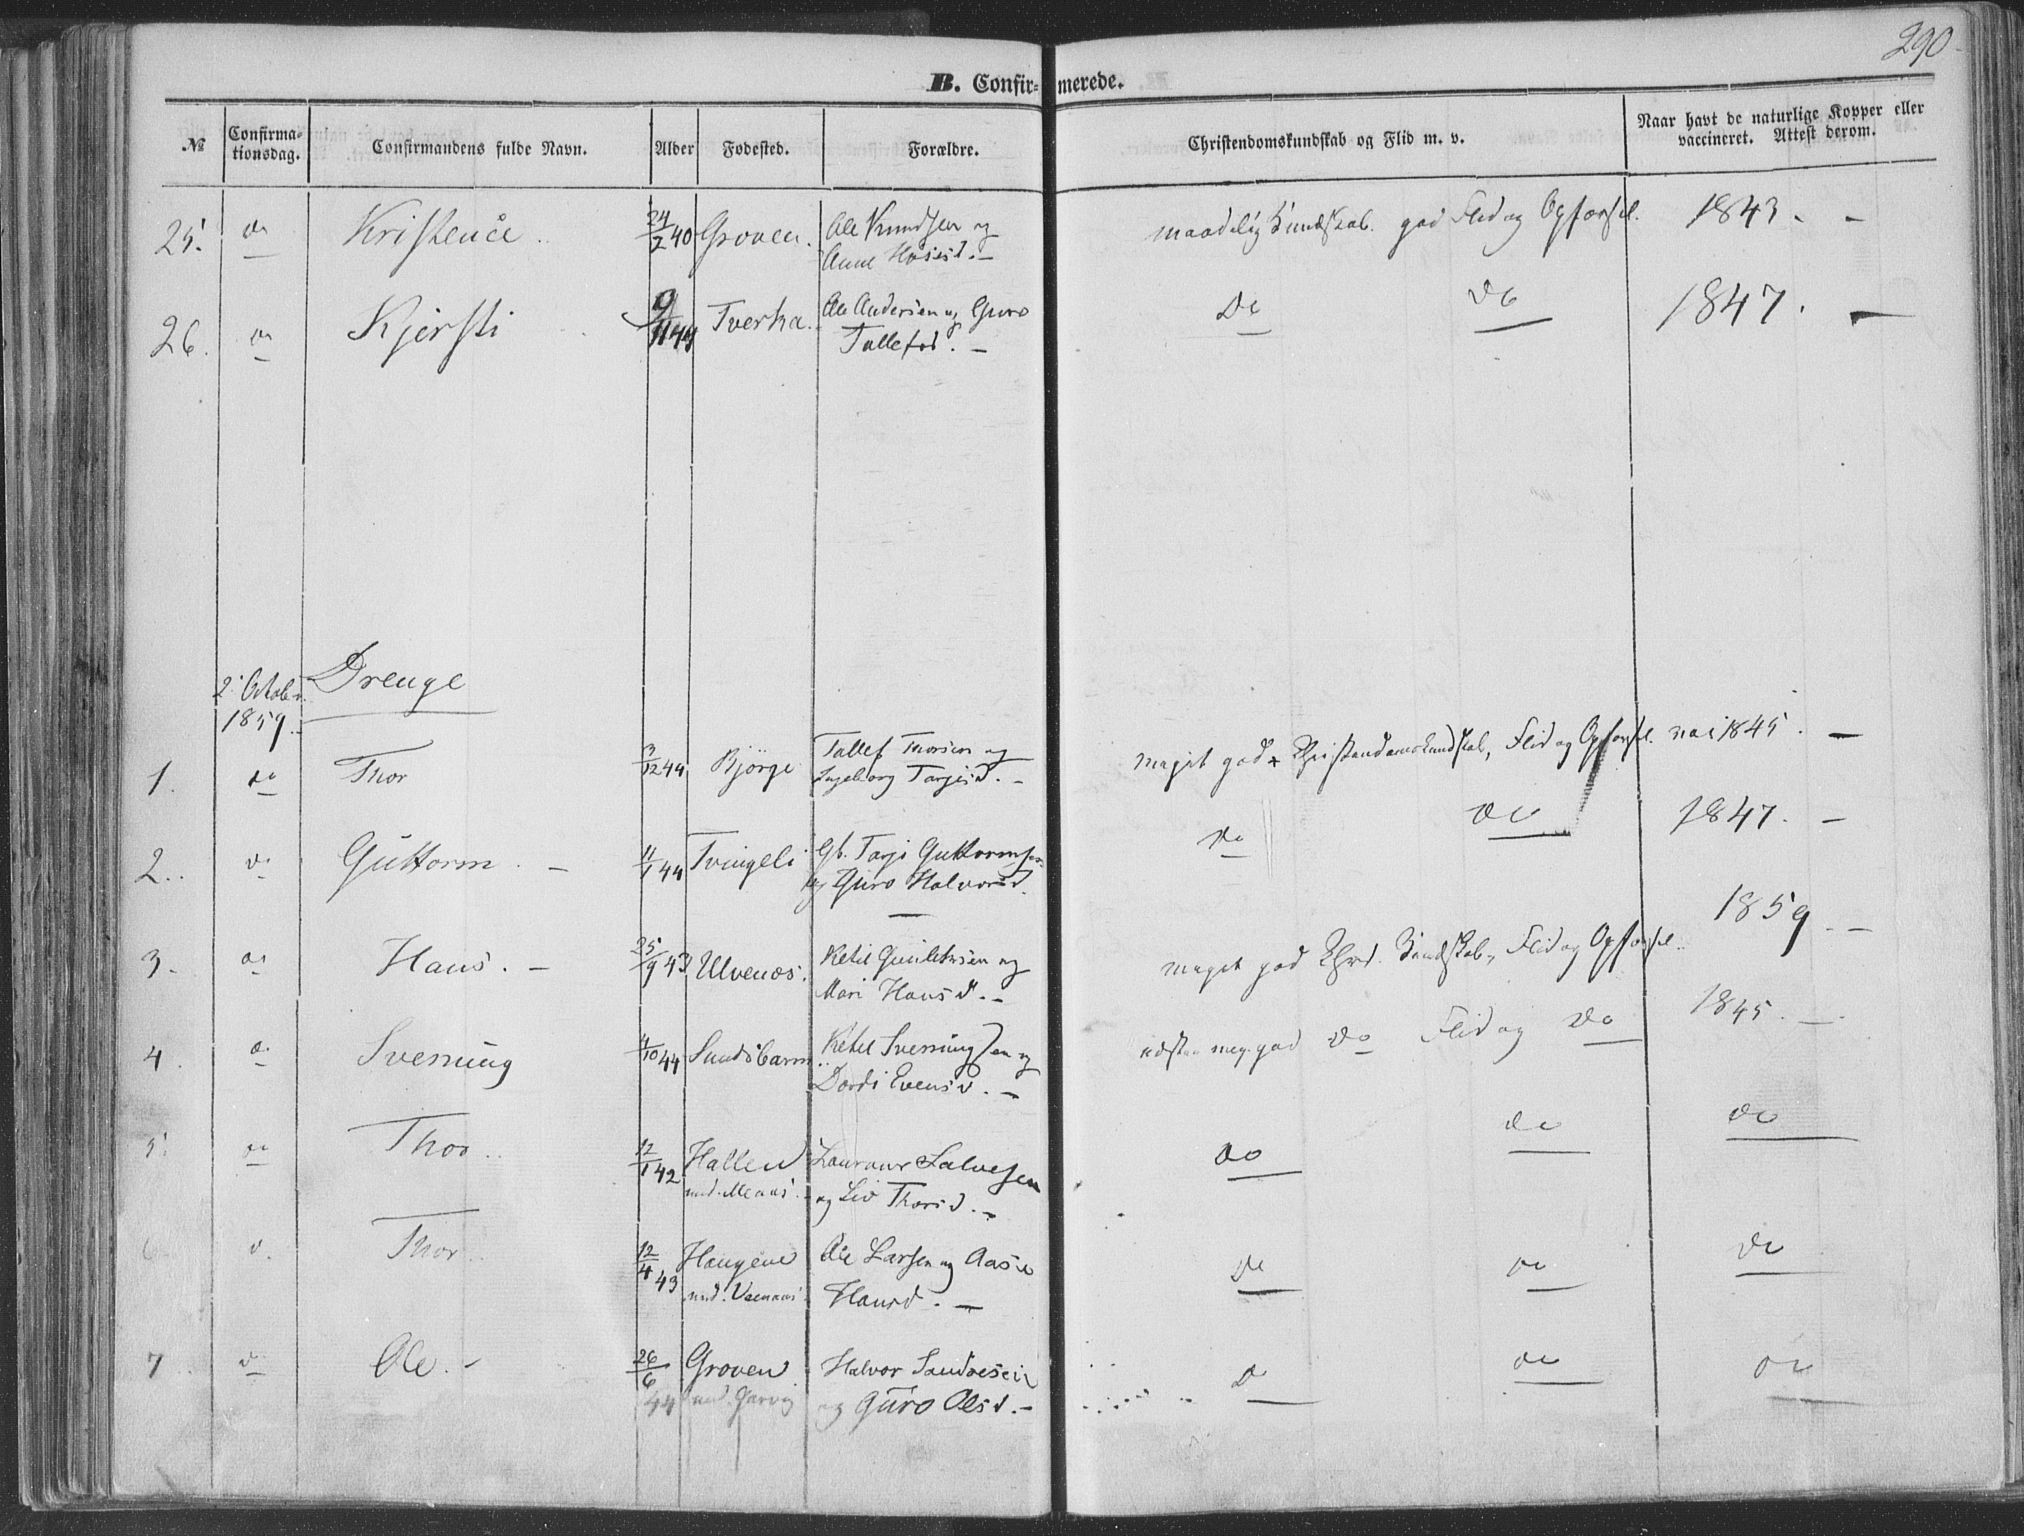 290
B. Confirmerede.
№ Confirmationsdag. Confirmandens fulde Navn. Alder Fødested. Forældre. Christendomskundskab og Flid m. v. Naar havt de naturlige Kopper eller vaccineret. Attest derom.
25. do Kristence 24/2 40 Groven. Ole Knudsen og maadelig Kundskab. god Flid og Opførsel. 1843. -
Anne
26. do Kjersti 9/11 44 Tverka. Ole Andersen og Guro do do 1847. -
Tallefsd. -
2. Octobr. Drenge
1859.
1. do Thor 3/12 44 Bjørge Tallef Thorsen og meget god Christendomskundskab, Flid og Opførsel. 1845. -
Ingeborg Targesd. -
2. do Guttorm. - 11/1 44 Tvingeli Gb. Tarje Guttormsen do do 1847. -
og Guro Halvorsd.
3. do Hans. - 25/9 43 Ulvenos. Ketil Gunleksen og meget god Chrd. Kundskab, Flid og Opførsel. 1859. -
Mari Hansd. -
4. do Svenning 4/10 44 Sundsbarm Ketil Svenningsen og næsten meg. god do Flid og do 1845. -
Dordi Evensd. -
5. do Thor 12/1 42 Hallen Laurans Salvesen do do do
und. og Liv Thorsd. -
6 d. Thor 12/4 43 Haugene Ole Larsen og Aase do do do
und. Hansd. -
7 do Ole. - 26/6 44 Groven Halvor Sandresen do do do
und. og Guro Olsd. -